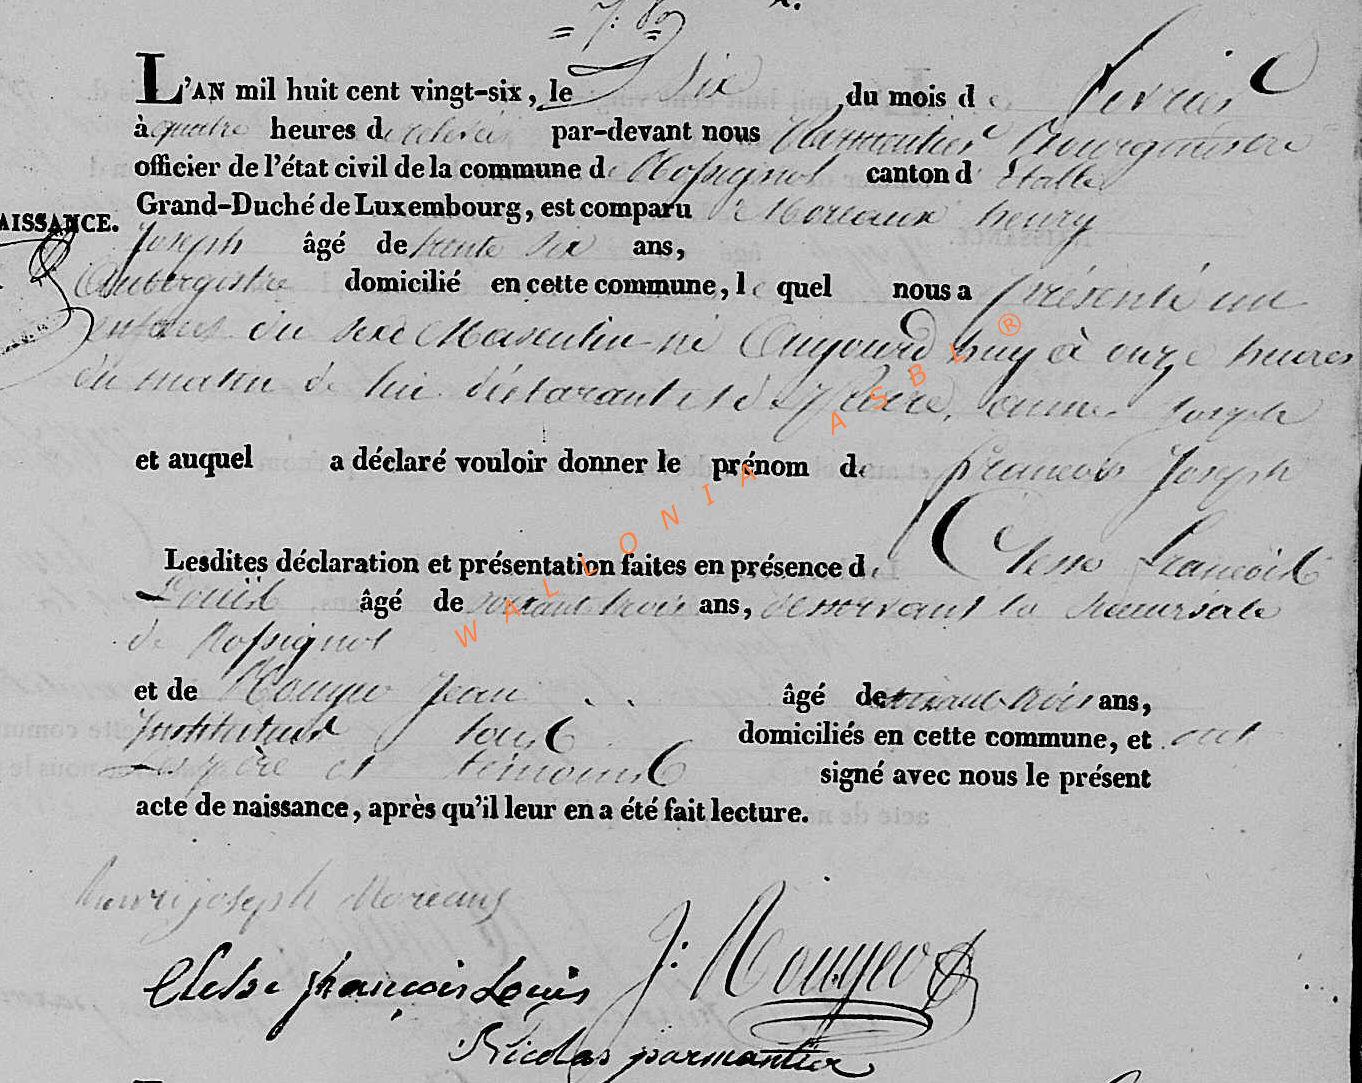 L'AN mil huit cent vingt-six, le Six du mois de fevrier
à quatre heures de relevée par-devant nous Parmentier Bourgmestre
officier de l'état civil de la commune de Rossignol canton d'Etalle
Grand-Duché de Luxembourg, est comparu le Moreaux henry
AISSANCE.
Joseph âgé de trente six ans,
Aubergiste domicilié en cette commune, le quel nous a présenté un
enfant du sexe Masculin né Aujourd huy à onze heures
du matin de lui déclarant et de Joseph
et auquel a déclaré vouloir donner le prénom de francois Joseph
Lesdites déclaration et présentation faites en présence de Clesse francois
Louis âgé de soixant trois ans, desservant la succursale
de Rossignol
et de Rougeo Jean âgé de ans,
Instituteur tous domiciliés en cette commune, et ont
père et temoins signé avec nous le présent
acte de naissance, après qu'il leur en a été fait lecture.
henri joseph Moreaux
Clesse françois Louis J: Rougeo
Nicolas parmentier
WALLONIA ASBL ®